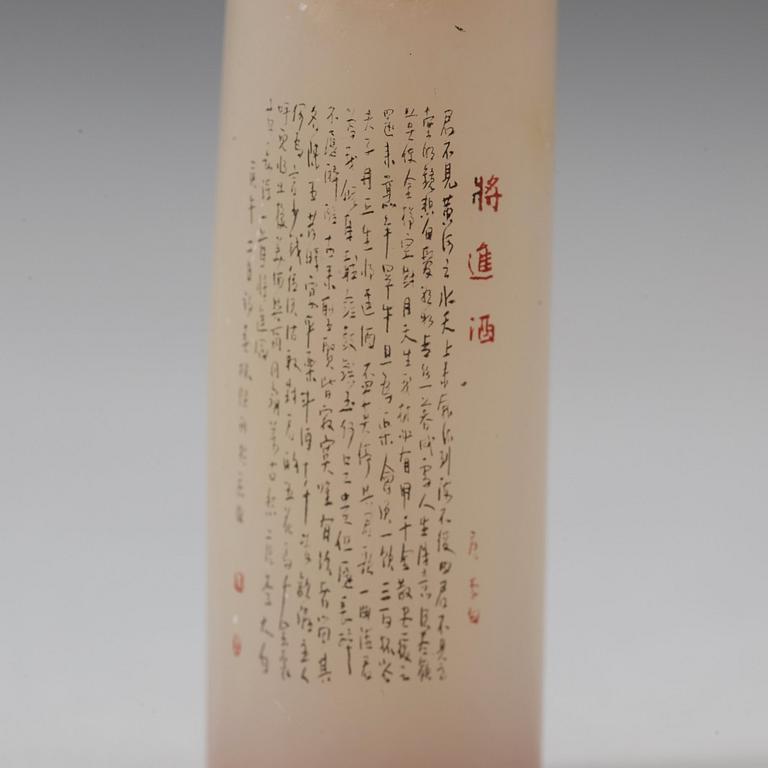 將進酒
唐李白
君不見黃河之水天上來奔流到海不復回君不見高
堂明鏡悲白髮朝如青絲暮成雪人生得意須盡歡
莫使金樽空對月天生我材必有用千金散盡
還來烹羊宰牛且為樂會須一飲三百杯岑
夫子丹丘生將進酒杯莫停與君歌一曲請君
為我傾耳聽鐘鼓饌玉何足貴但愿長醉
不愿醒古來聖賢皆寂寞唯有飲者留其
名陳王昔時宴平樂斗酒十千恣歡謔主人
何為言少錢徑須沽取對君酌五花馬千金裘
呼兒將出換美酒與爾同銷萬古愁李太白
一首將進酒
庚午二月